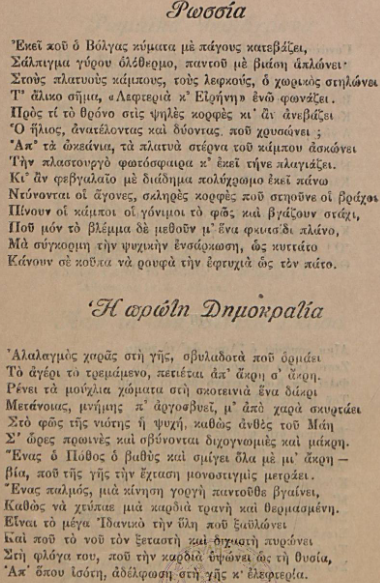 Ρωσσία
Ἐκεῖ ποῦ ὁ Βόλγας κύματα μὲ πάγους κατεβάζει,
Σάλπιγμα γύρου ὁλόθερμο, παντοῦ μὲ βιάση ἁπλώνει·
Στοὺς πλατυοὺς κάμπους, τοὺς λεφκούς, ὁ χωρικὸς στηλώνει
Τ' ἄλικο σῆμα, «Λεφτεριὰ κ' Εἰρήνη» ἐνῶ φωνάζει.
Πρὸς τί τὸ θρόνο στὶς ψηλὲς κορφὲς κι' ἂν ἀνεβάζει
Ὁ ἥλιος, ἀνατέλοντας καὶ δύοντας, ποῦ χρυσώνει;
Ἀπ' τὰ ὠκεάνια, τὰ πλατυὰ στέρνα τοῦ κάμπου ἀσκώνει
Τὴν πλαστουργὸ φωτόσφαιρα κ' ἐκεῖ τήνε πλαγιάζει.
Κι' ἂν φεβγαλαῖο μὲ διάδημα πολύχρωμο ἐκεῖ πάνω
Ντύνονται οἱ ἄγονες, σκληρὲς κορφὲς ποῦ στηοῦνε οἱ βράχοι
Πίνουν οἱ κάμποι οἱ γόνιμοι τὸ φῶς καὶ βγάζουν στάχι,
Ποῦ μόν τὸ βλέμμα δὲ μεθοῦν μ' ἕνα φκιασίδι πλάνο,
Μὰ σύγκορμη τὴν ψυχικὴν ἐνσάρκωση, ὡς κυττάτο
Κάνουν σὲ κοῦπα νὰ ρουφᾶ τὴν ἐφτυχιὰ ὡς τὸν πάτο.
Ἡ πρώτη Δημοκρατία
Ἀλαλαγμὸς χαρᾶς στὴ γῆς, σβυλαδοτὰ ποῦ ὁρμάει
Τὸ ἀγέρι τὸ τρεμάμενο, πετιέται ἀπ' ἄκρη σ' ἄκρη.
Ρένει τὰ μούχλια χώματα στὴ σκοτεινιὰ ἕνα δάκρι
Μετάνοιας, μνήμης π' ἀργοσβυεῖ, μ' ἀπὸ χαρὰ σκυρτάει
Στὸ φῶς τῆς νιότης ἡ ψυχή, καθὼς ἀνθὸς τοῦ Μάη
Σ' ὧρες πρωινὲς καὶ σβύνονται διχογνωμιὲς καὶ μάκρη.
Ἕνας ὁ Πόθος ὁ βαθὺς καὶ σμίγει ὅλα μὲ μι' ἄκρη —
βία, ποῦ τῆς γῆς τὴν ἔχταση μονοστιγμὶς μετράει.
Ἕνας παλμός, μιὰ κίνηση γοργὴ παντοῦθε βγαίνει,
Καθὼς νὰ χτύπαε μιὰ καρδιὰ τρανὴ καὶ θερμασμένη.
Εἶναι τὸ μέγα Ἰδανικὸ τὴν ὕλη ποῦ ξαϋλώνει
Καὶ ποῦ τὸ νοῦ τὸν ξεταστὴ καὶ διχαστὴ πυρώνει
Στὴ φλόγα του, ποῦ τὴν καρδιὰ ὑψώνει ὡς τὴ θυσία,
Ἀπ' ὅπου ἰσότη, ἀδέλφωση στὴ γῆς κ' ἐλεφτερία.